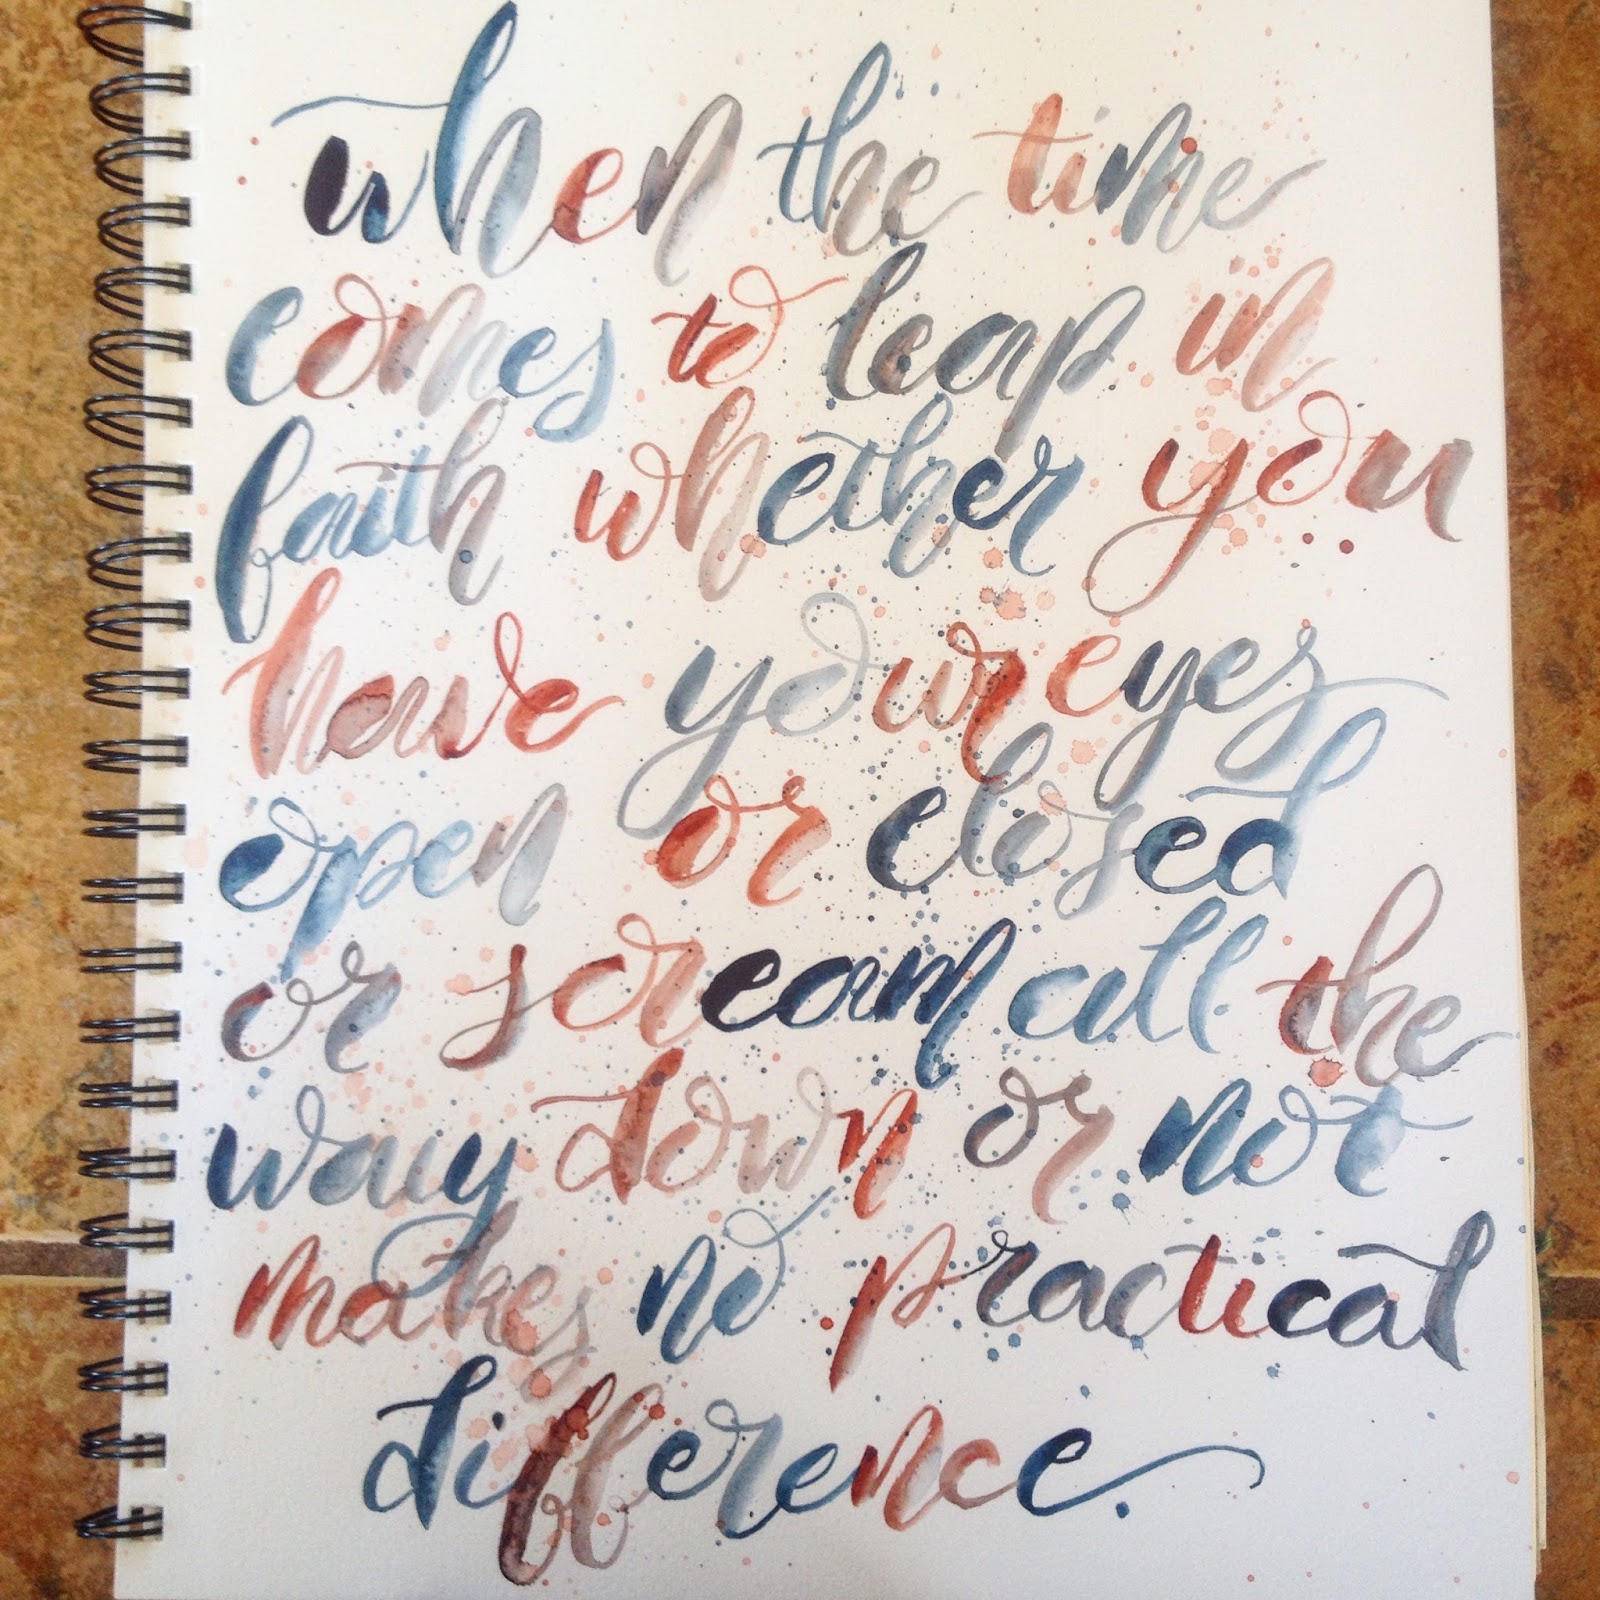 when the time
comes to leap in
faith whether you
have your eyes
open or closed
or scream all the
way down or not
makes no practical
difference.